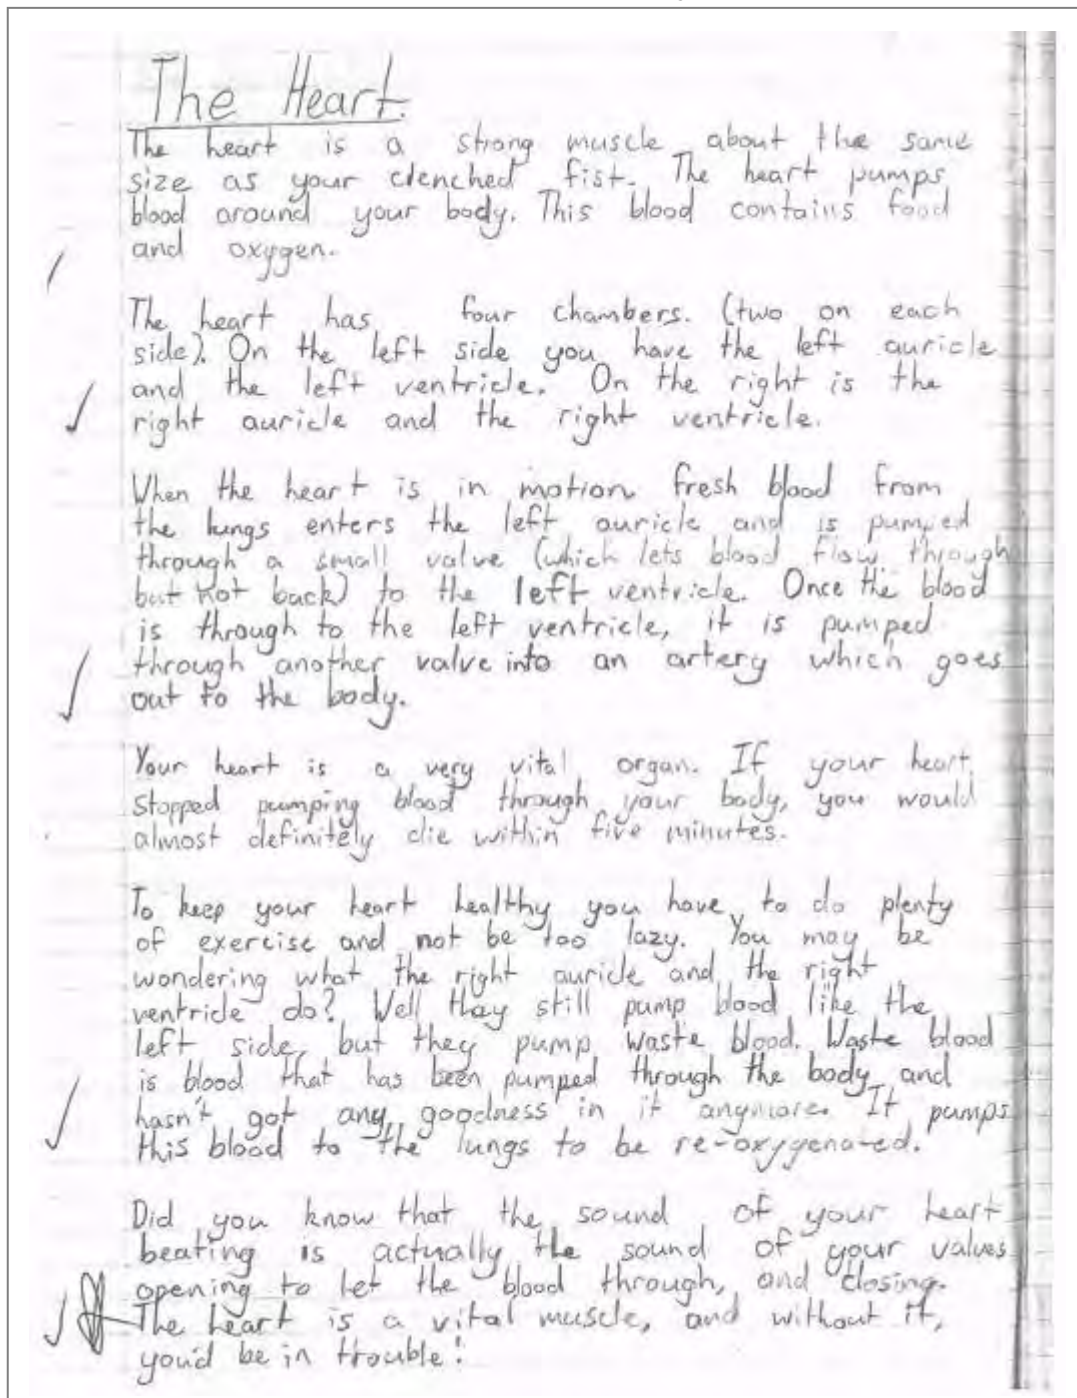 The Heart.
The heart is a strong muscle about the same
size as your clenched fist. The heart pumps
blood around your body. This blood contains food
and oxygen.
The heart has four chambers. (two on each
side). On the left side you have the left auricle
and the left ventricle. On the right is the
right auricle and the right ventricle.
When the heart is in motion fresh blood from
the lungs enters the left auricle and is pumped
through a small valve (which lets blood flow through
but not back) to the left ventricle. Once the blood
is through to the left ventricle, it is pumped
through another valve into an artery which goes
out to the body.
Your heart is a very vital organ. If your heart
stopped pumping blood through your body, you would
almost definitely die within five minutes.
To keep your heart healthy you have to do plenty
of exercise and not be too lazy. You may be
wondering what the right auricle and the right
ventricle do? Well they still pump blood like the
left side, but they pump waste blood. Waste blood
is blood that has been pumped through the body and
hasn't got any goodness in it anymore. It pumps
this blood to the lungs to be re-oxygenated.
Did you know that the sound of your heart
beating is actually the sound of your valves
opening to let the blood through, and closing.
The heart is a vital muscle, and without it,
you'd be in trouble!